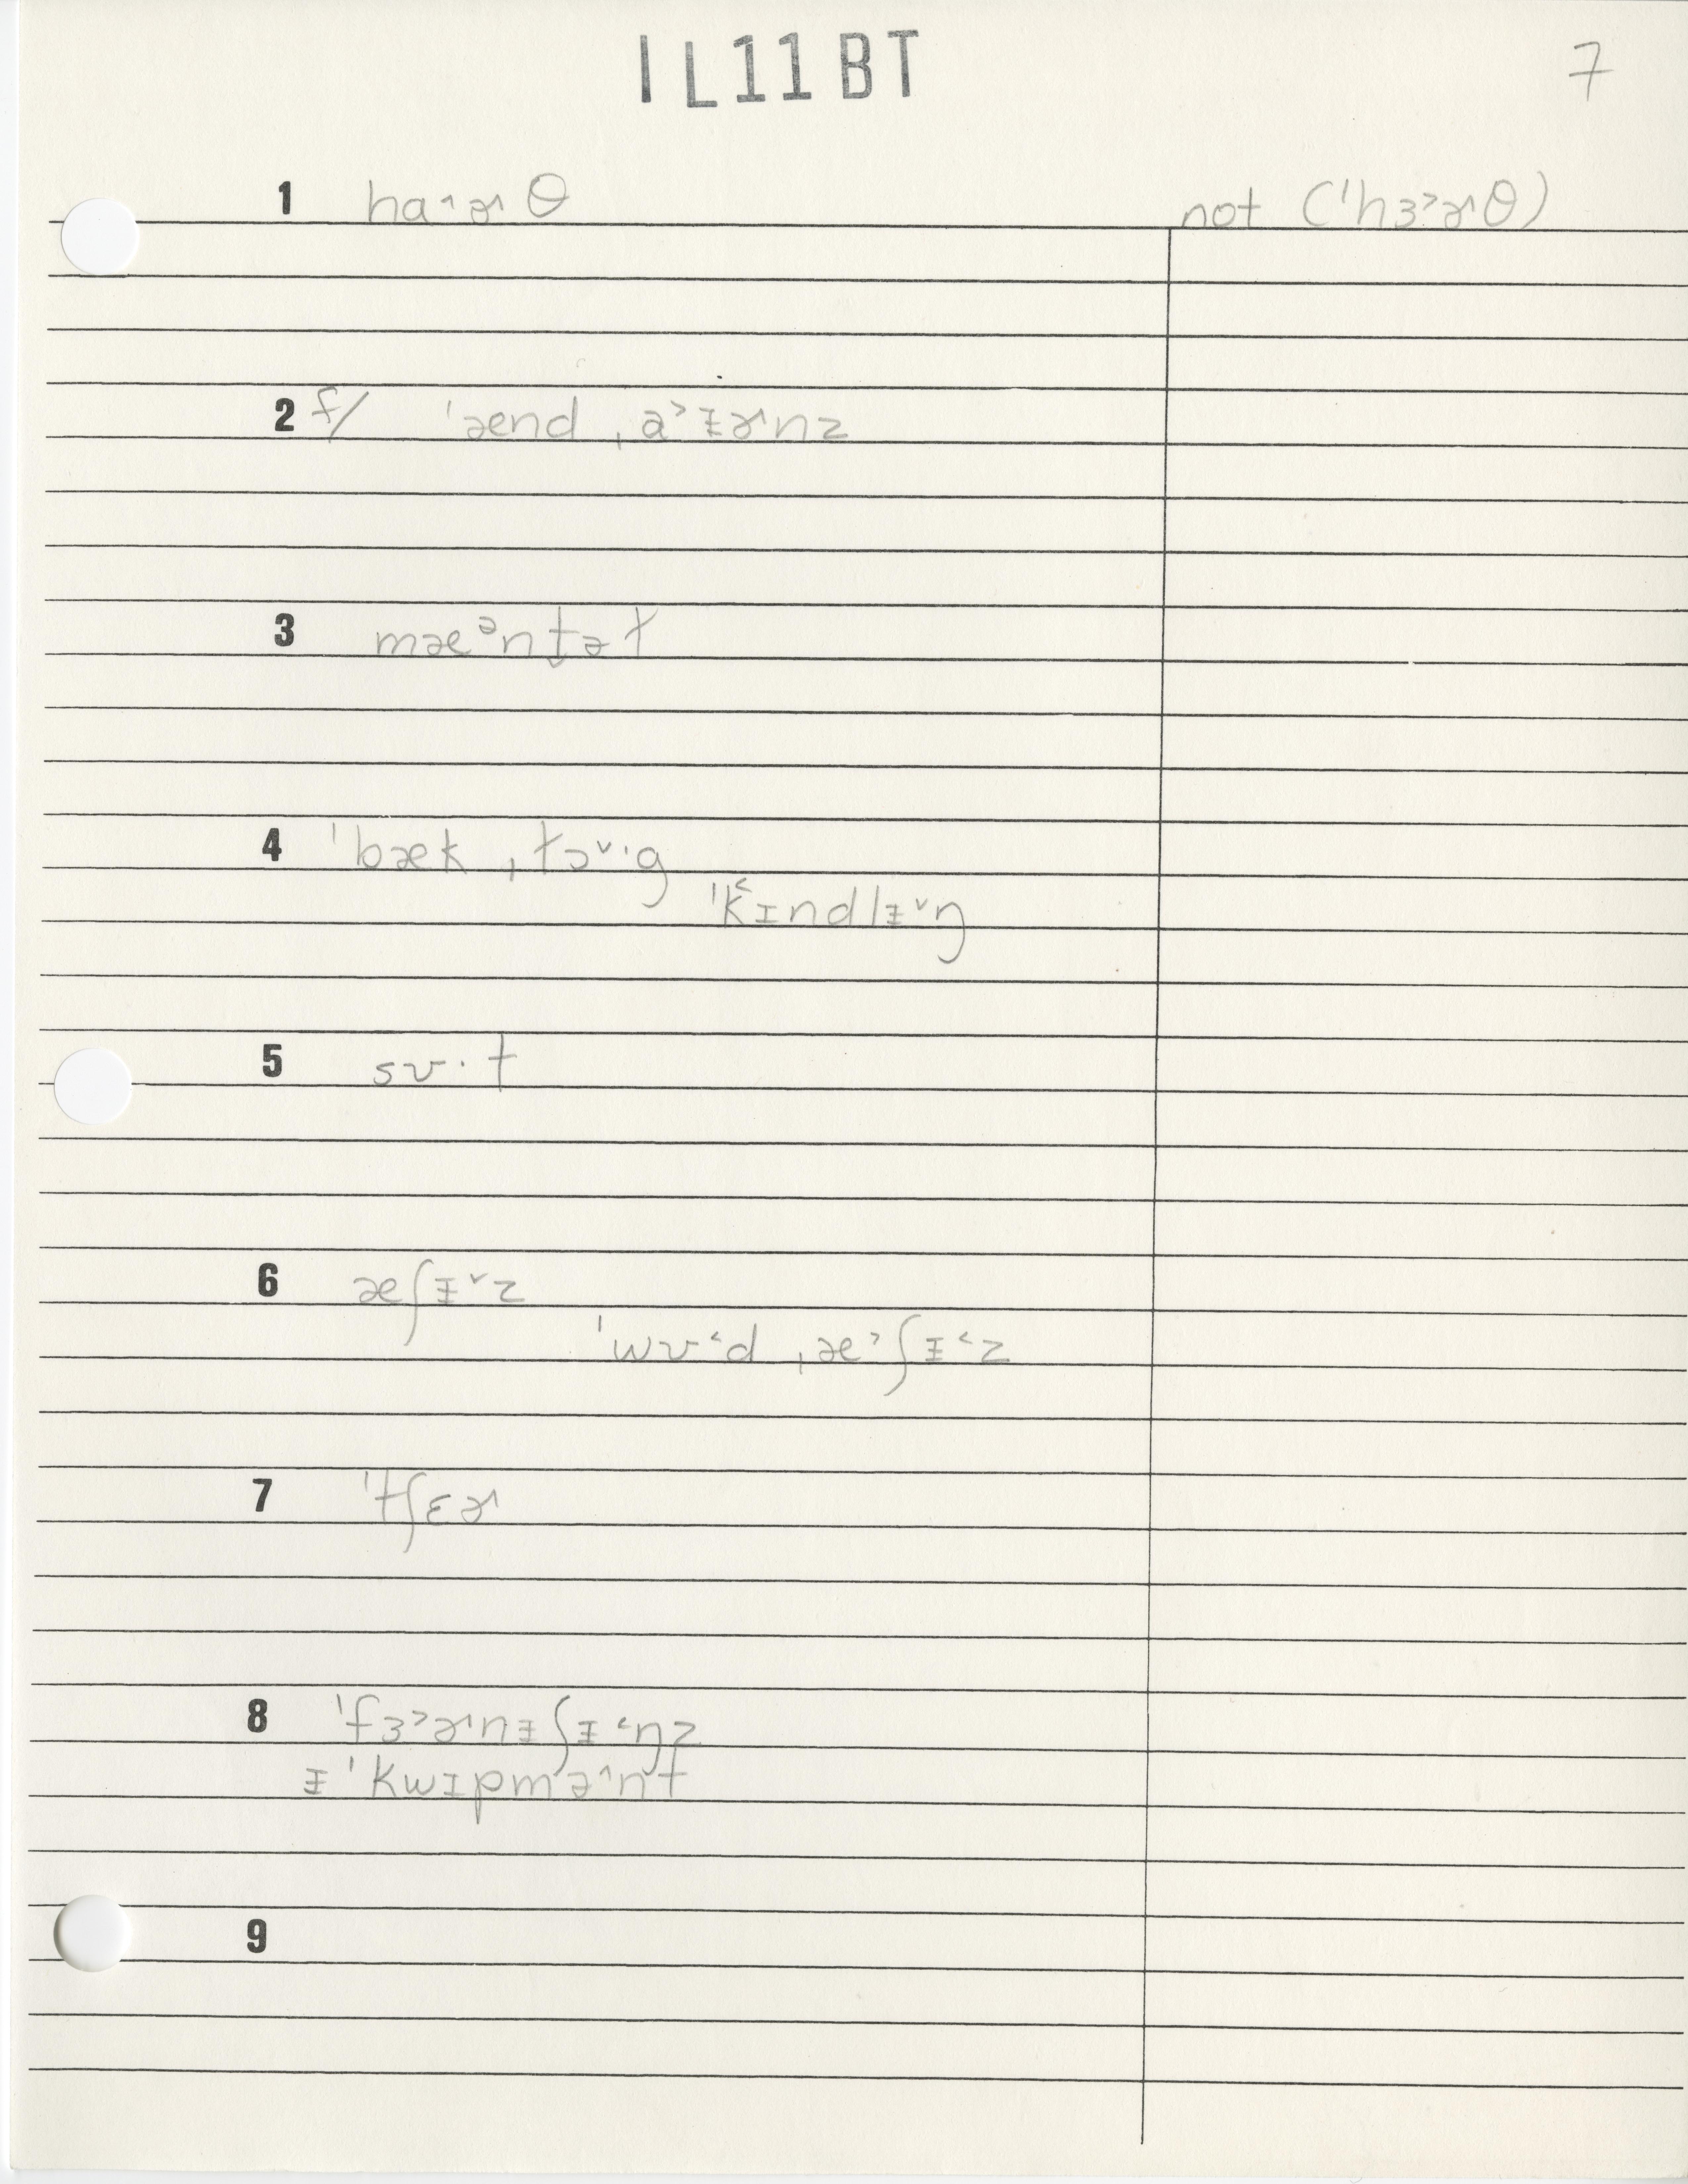 1L11BT
7
1 haˑ^ɚ θ not (ˈhɜ˃ɚθ)
2 f/ ˈænd ˌa˃ɨɚnz
3 mæᵊntəɫ
4 ˈbæk ˌɫɔ˅ˑg
ˈk˂ɪndlɨ˅ŋ
5 sʊˑt
6 æʃɨ˅z
ˈwʊ˂d ˌæ˃ʃɨ˂z
7 ˈtʃɛɚ
8 ˈfɜ˃ɚnɨʃɨ˂ŋz
ɨˈkwɪpmə^nt
9